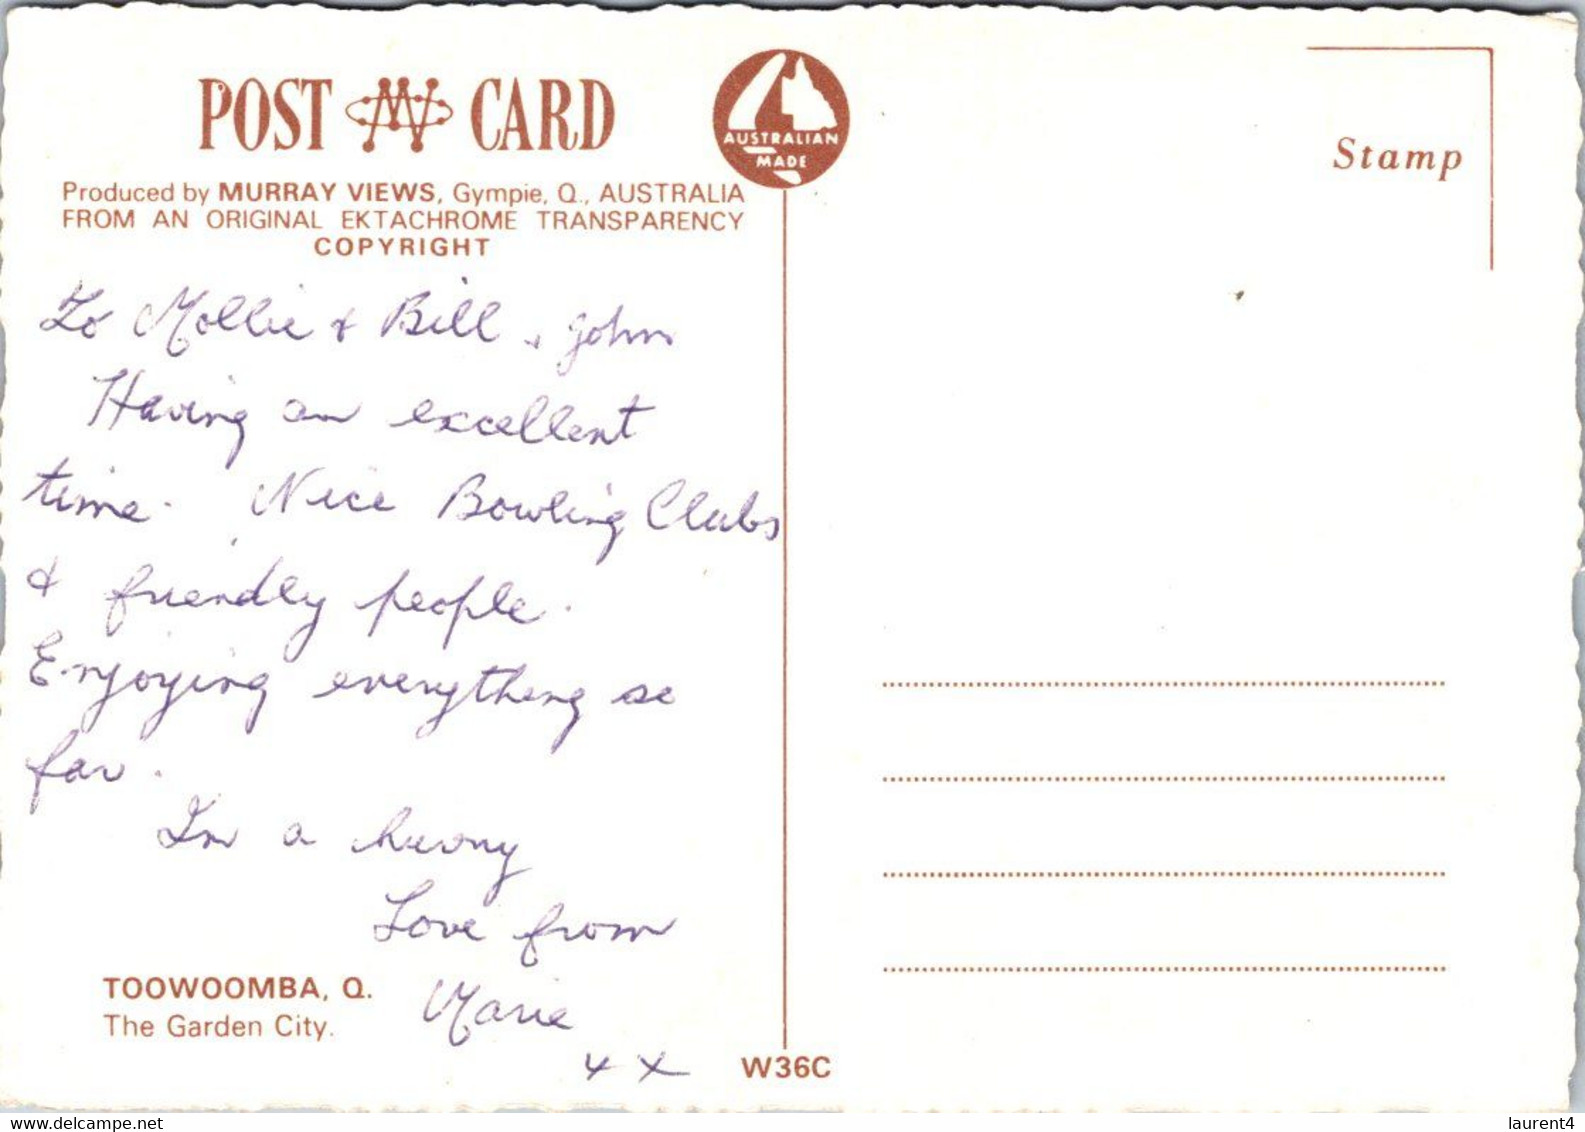 POST CARD
AUSTRALIAN
MADE
Stamp
Produced by MURRAY VIEWS, Gympie, Q., AUSTRALIA
FROM AN ORIGINAL EKTACHROME TRANSPARENCY
COPYRIGHT
To Mollie & Bill & John
Having an excellent
time. Nice Bowling Clubs
& friendly people.
Enjoying everything so
far.
In a hurry
Love from
Marie
x x
TOOWOOMBA, Q.
The Garden City.
W36C
delcampe.net
laurent4